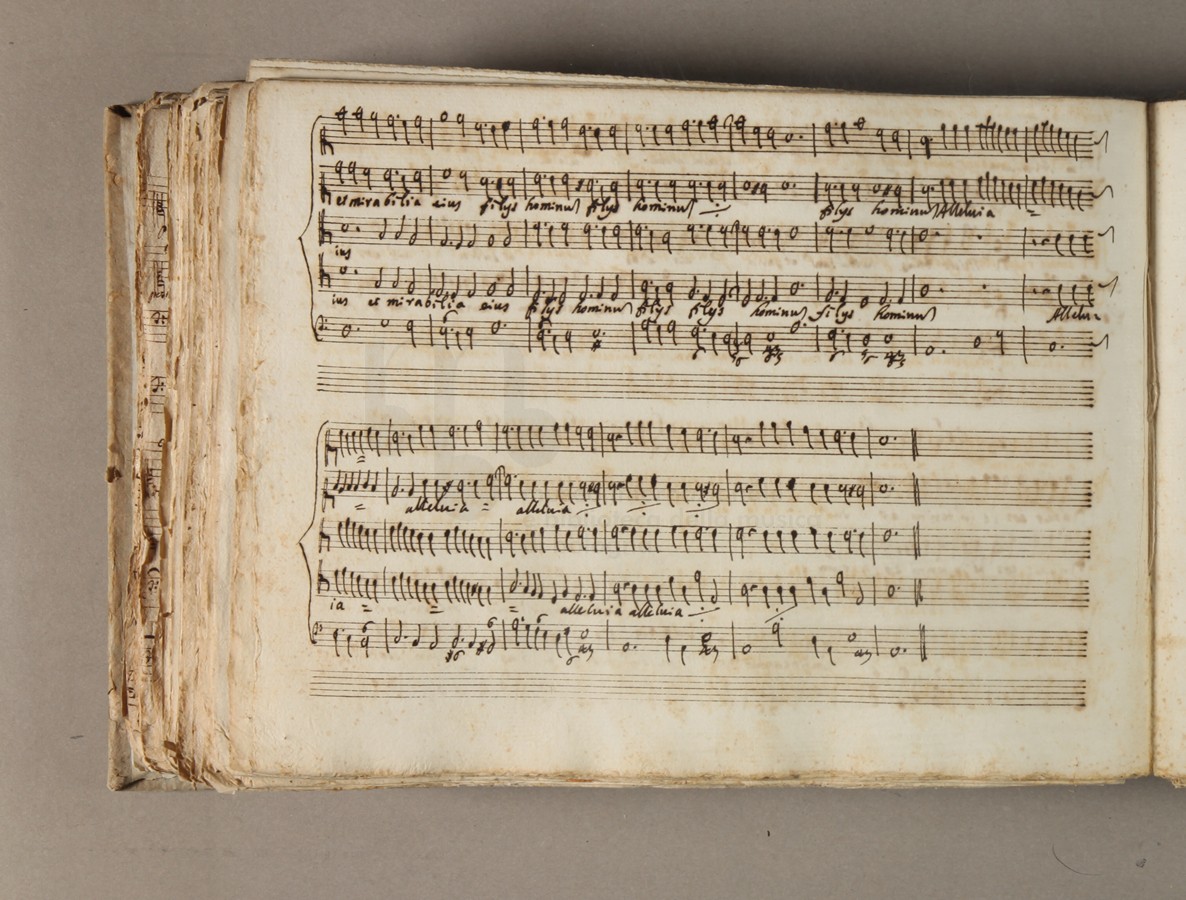 et mirabilia eius filys hominum filys hominum filys hominum Alleluia
ius
ius et mirabilia eius filys hominum filys filys hominum filys hominum Allelu
alleluia alleluia
ia alleluia alleluia